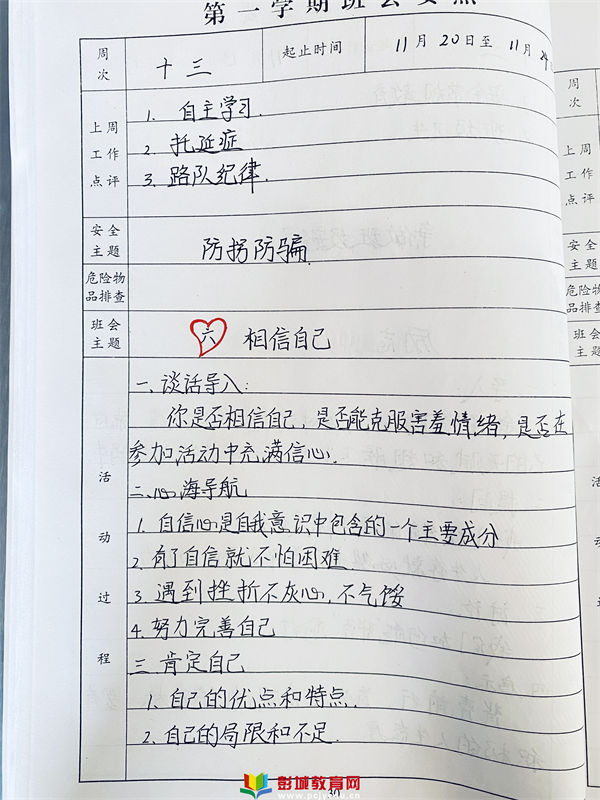 第一学期班会要点
周次 十三 起止时间 11月20日至11月24
上周工作点评
1. 自主学习.
2. 托延症
3. 路队纪律.
安全主题 防拐防骗.
危险物品排查
班会主题 六 相信自己
活动过程
一.谈话导入:
你是否相信自己,是否能克服害羞情绪,是否在
参加活动中充满信心.
二.心海导航
1.自信心是自我意识中包含的一个主要成分
2.有了自信就不怕困难.
3.遇到挫折不灰心,不气馁
4.努力完善自己
三.肯定自己
1.自己的优点和特点.
2.自己的局限和不足.
周次
上周工作点评
安全主题
危险物品排查
班会主题
彭城教育网
www.pcjyw.cn